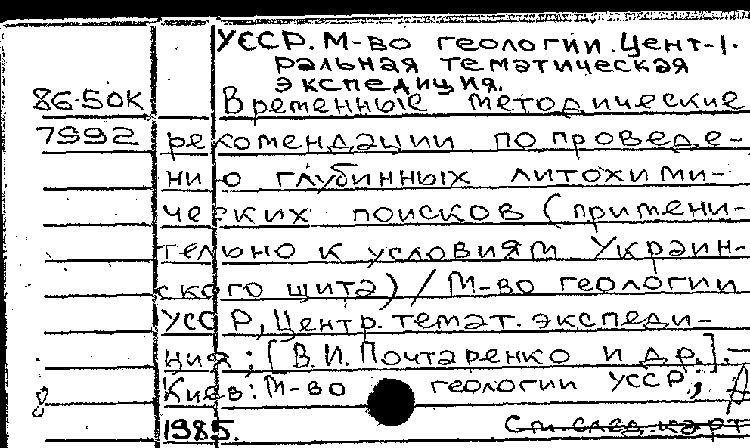 УССР. М-во геологии. Цент-
ральная тематическая
экспедиция.
86-50К Временные методические
7992 рекомендации по проведе-
нию глубинных литохими-
ческих поисков (примени-
тельно к условиям Украин-
ского щита) / М-во геологии
УССР, Центр. темат. экспеди-
ция; [В.И. Почтаренко и др.]. —
Киев: М-во геологии УССР,
1985.
См. след. карт